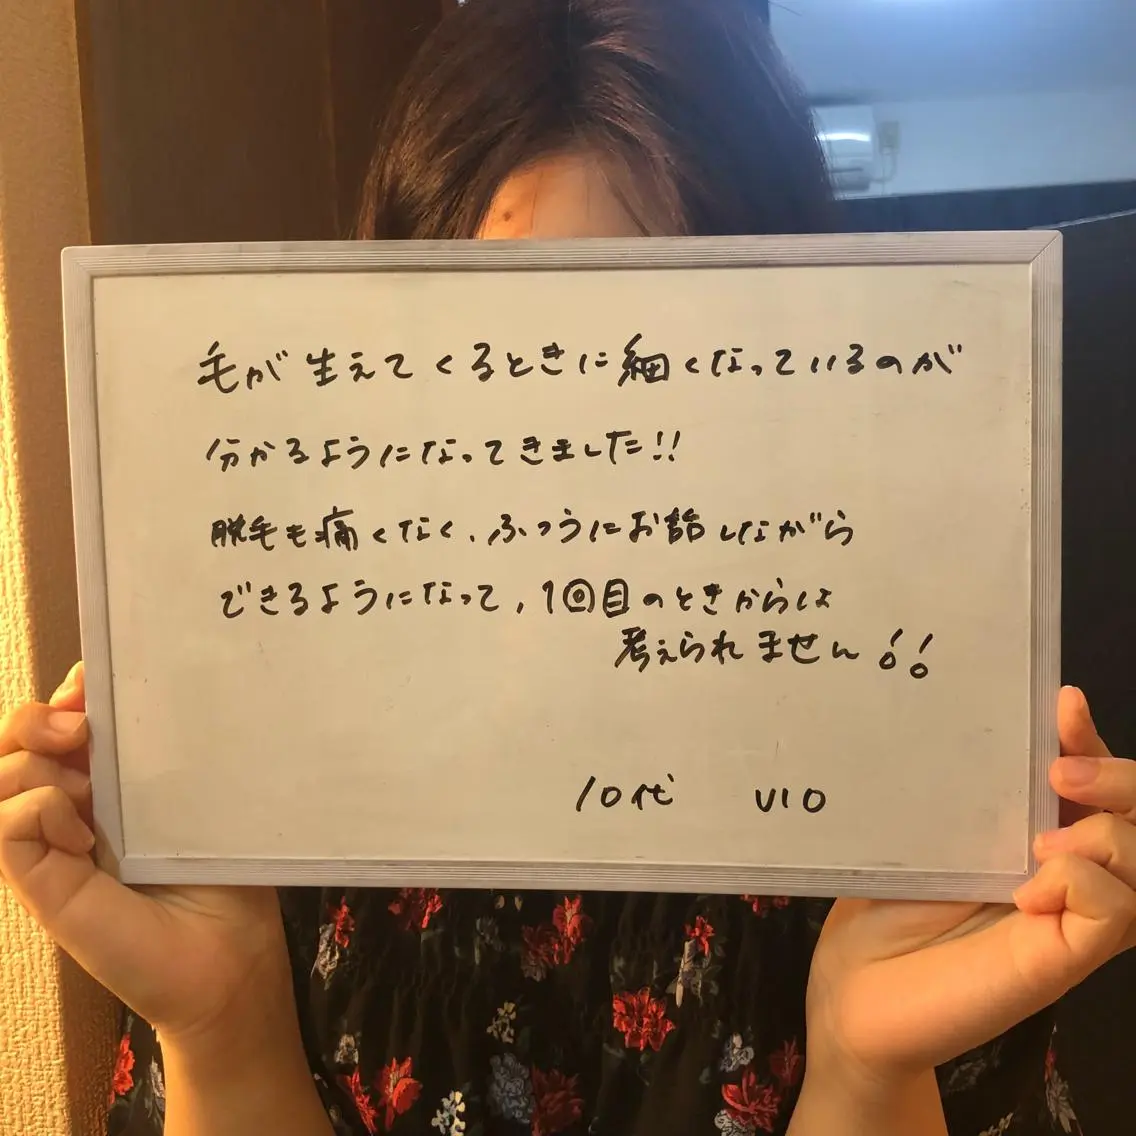 毛が生えてくるときに細くなっているのが
分かるようになってきました!!
脱毛も痛くなく、ふつうにお話しながら
できるようになって、1回目のときからは
考えられません!!
10代 VIO